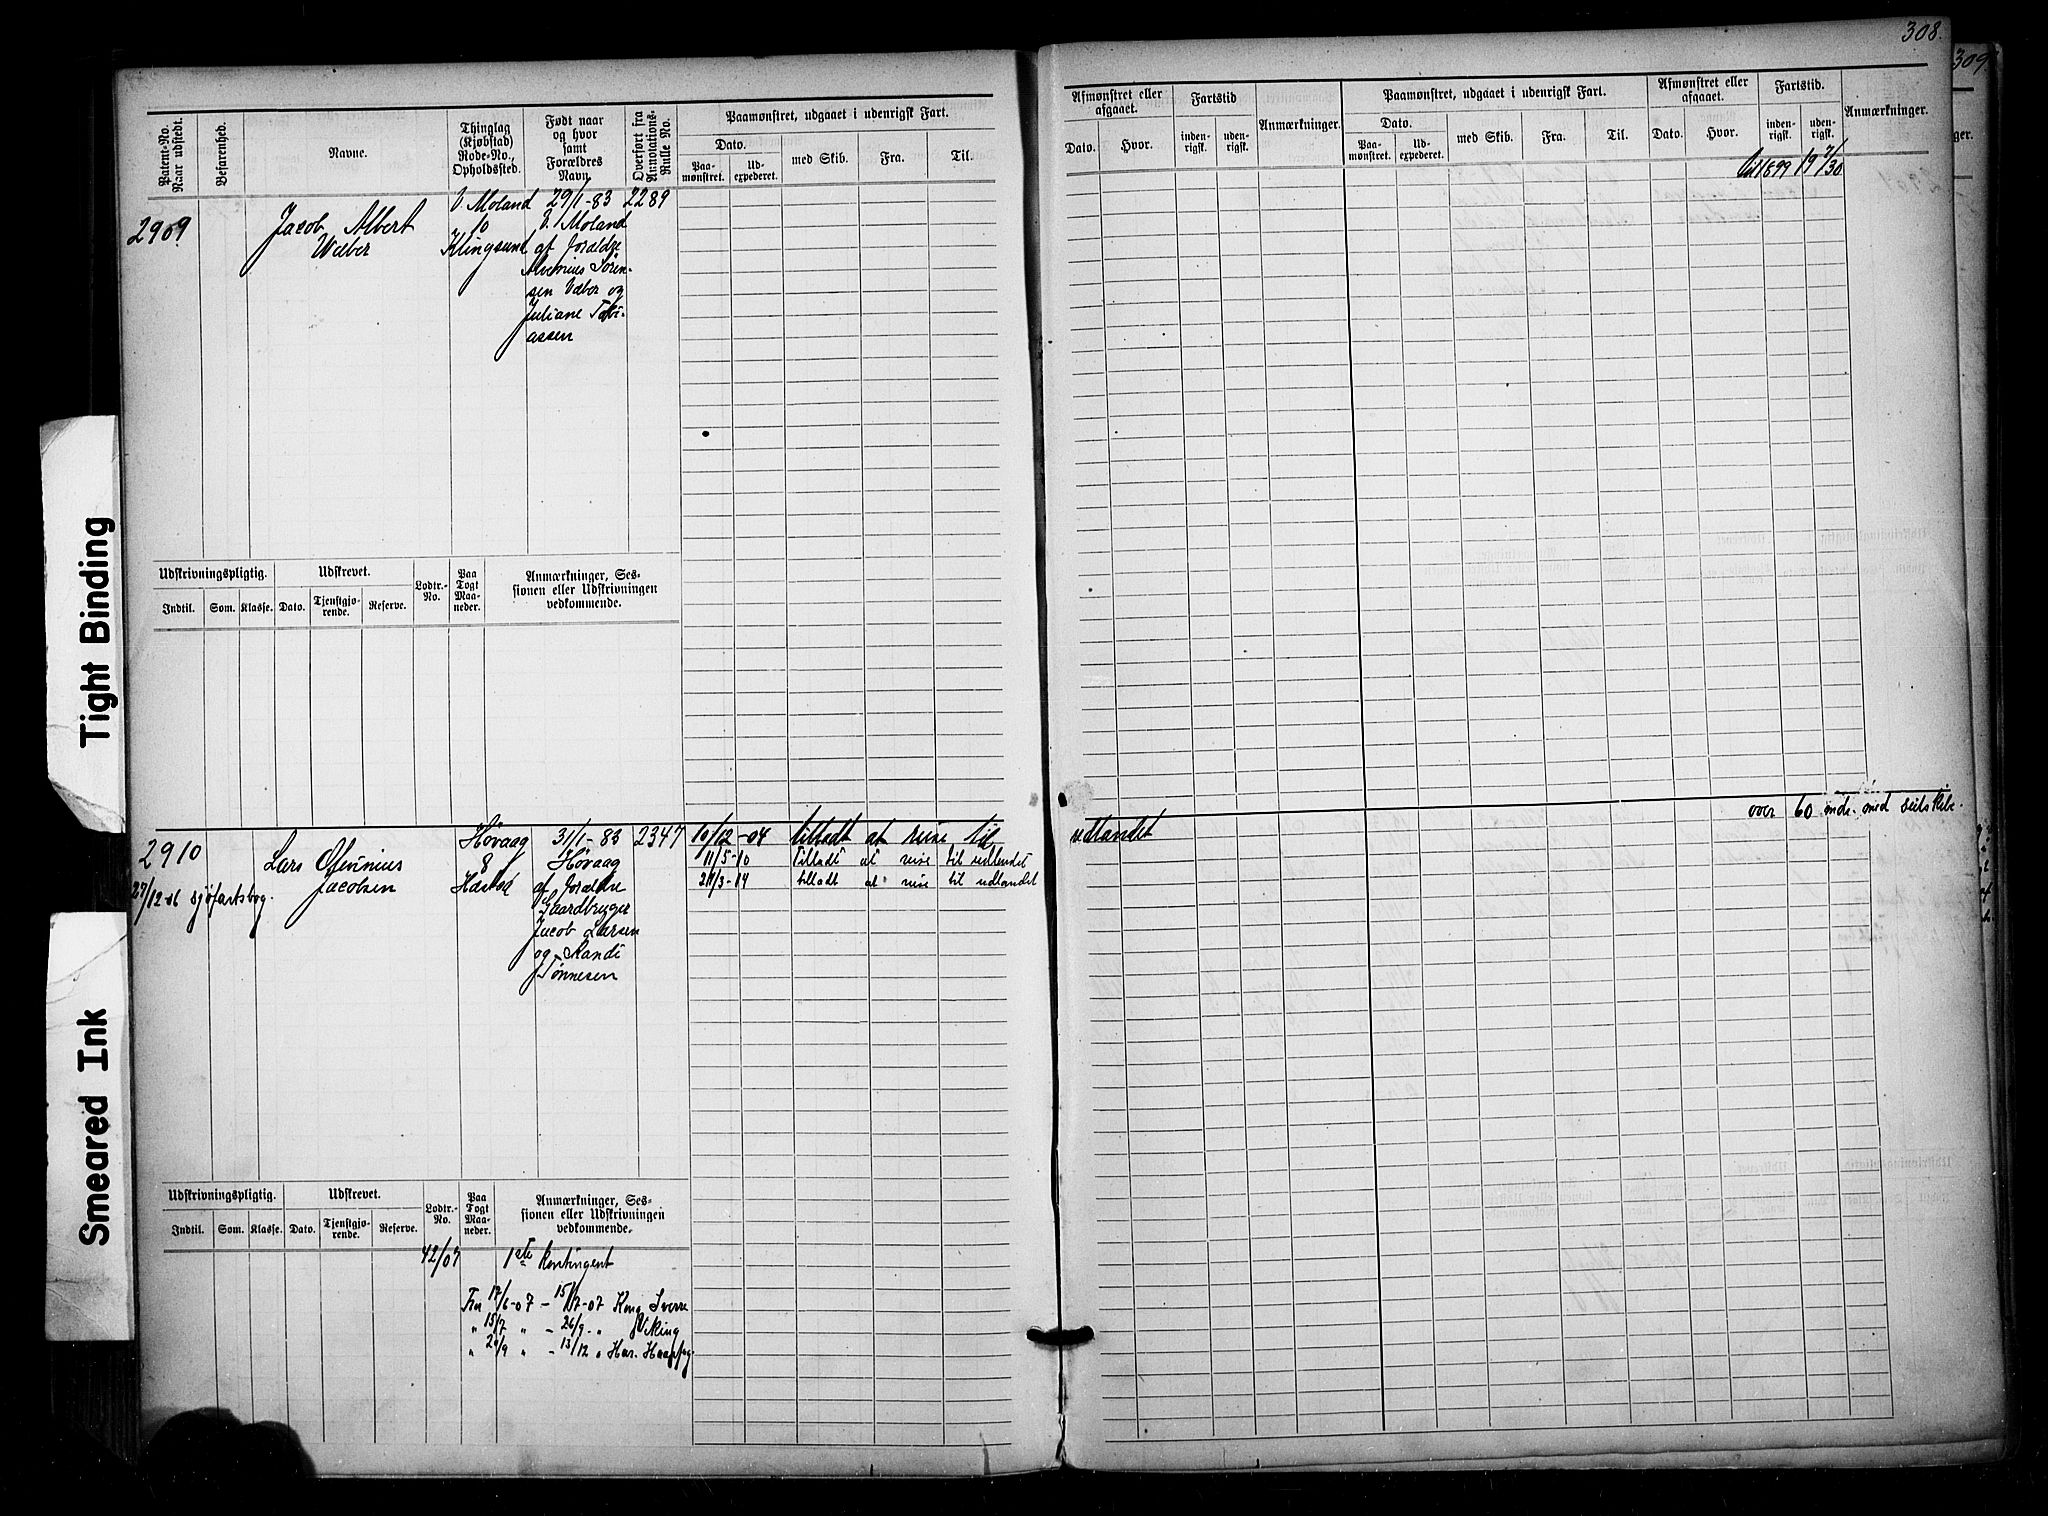 308.
309
Patent-No. Naar udstedt.
Befarenhed.
Navne.
Thinglag (Kjøbstad) Rode-No., Opholdssted.
Født naar og hvor samt Forældres Navn.
Overført fra Annotations-Rulle No.
Paamønstret, udgaaet i udenrigsk Fart.
Dato.
Paa-mønstret.
Ud-expederet.
med Skib.
Fra.
Til.
Afmønstret eller afgaaet.
Dato.
Hvor.
Fartstid
inden-rigsk.
uden-rigsk.
Anmærkninger.
Paamønstret, udgaaet i udenrigsk Fart.
Dato.
Paa-mønstret.
Ud-expederet.
med Skib.
Fra.
Til.
Afmønstret eller afgaaet.
Dato.
Hvor.
Fartstid.
inden-rigsk.
uden-rigsk.
Anmærkninger.
ger.
2909
Jacob Albert
Wæber
V. Moland
10
Klingsund
29/1-83
V. Moland
af Forældre
Søren-
sen Væber og
Juliane Tobi-
assen
2289
Udskrivningspligtig.
Udskrevet.
Lodtr.-No.
Paa Togt Maa-neder.
Anmærkninger, Ses-
sionen eller Udskrivningen
vedkommende.
Indtil.
Som.
Klasse.
Dato.
Tjenstgjø-rende.
Reserve.
2910
27/12-06 sjøfartsbog.
Lars
Jacobsen
Høvaag
8
Hæstad
31/1-83
Høvaag
af Forældre
Gaardbruger
Jacob Larsen
og Randi
Tønnesen
2347
10/12-04 tilladt at reise til udlandet
11/5-10 tilladt at reise til udlandet
21/3-14 tilladt at reise til udlandet
over 60 mdr. med seilskibe.
Udskrivningspligtig.
Udskrevet.
Lodtr.-No.
Paa Togt Maa-neder.
Anmærkninger, Ses-
sionen eller Udskrivningen
vedkommende.
Indtil.
Som.
Klasse.
Dato.
Tjenstgjø-rende.
Reserve.
42/07
1ste Kontingent
Fra 17/6-07 - 15/7-07 Kong Sverre
" 15/7 " - 26/9 " Viking
" 26/9 " - 13/12 " Har. Haarfag.
Tight Binding
Smeared Ink